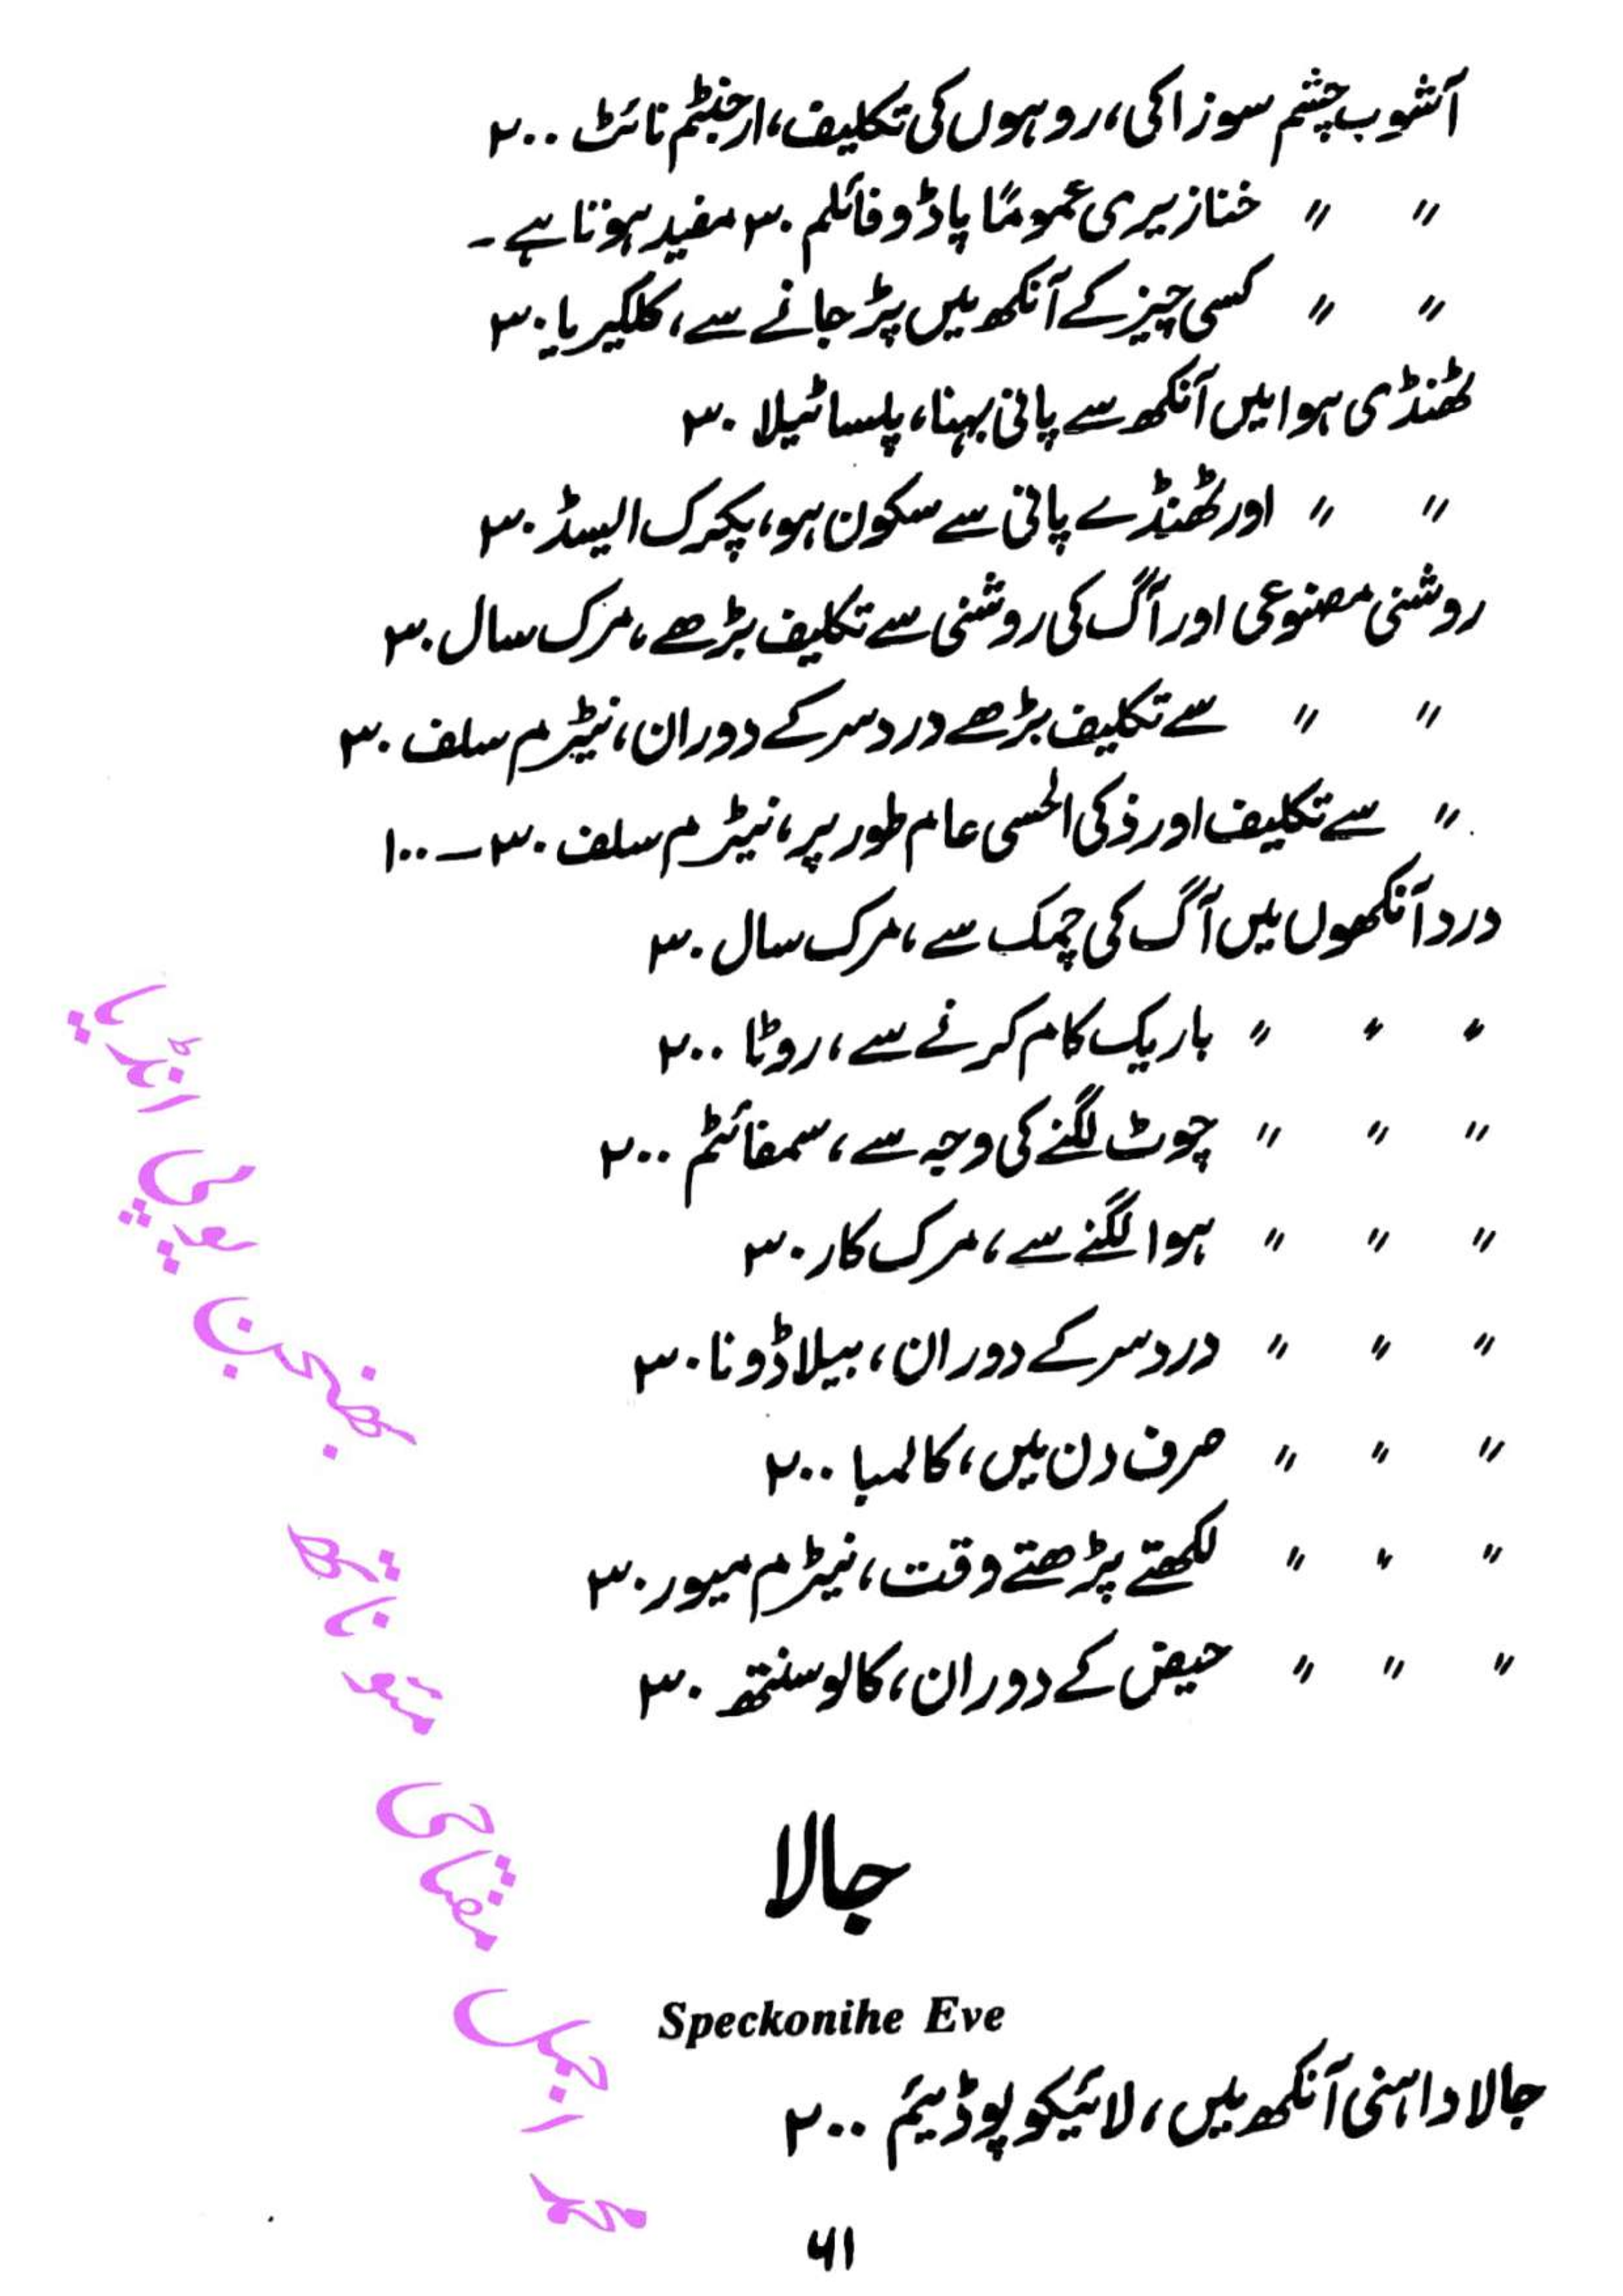 آشوب چشم سوزاکی، روہوں کی تکلیف، ارجنٹم نائٹ ۲۰۰
〃 〃 خنازیری عموماً پاڈوفائلم ۳۰ مفید ہوتا ہے۔
〃 〃 کسی چیز کے آنکھ میں پڑ جانے سے، کلکیریا ۳۰
ٹھنڈی ہوا میں آنکھ سے پانی بہنا، پلساٹیلا ۳۰
〃 〃 اور ٹھنڈے پانی سے سکون ہو، پکرک ایسڈ ۳۰
روشنی مصنوعی اور آگ کی روشنی سے تکلیف بڑھے، مرک سال ۳۰
〃 〃 سے تکلیف بڑھے درد سر کے دوران، نیٹرم سلف ۳۰
〃 سے تکلیف اور ذکی الحسی عام طور پر، نیٹرم سلف ۳۰ – ۱۰۰
درد آنکھوں میں آگ کی چمک سے، مرک سال ۳۰
〃 〃 〃 باریک کام کرنے سے، روٹا ۲۰۰
〃 〃 〃 چوٹ لگنے کی وجہ سے، سمفائٹم ۲۰۰
〃 〃 〃 ہوا لگنے سے، مرک کار ۳۰
〃 〃 〃 درد سر کے دوران، بیلاڈونا ۳۰
〃 〃 〃 صرف دن میں، کالمیا ۲۰۰
〃 〃 〃 لکھتے پڑھتے وقت، نیٹرم میور ۳۰
〃 〃 〃 حیض کے دوران، کالوسنتھ ۳۰
جالا
Speckonihe Eve
جالا داہنی آنکھ میں، لائیکوپوڈیئم ۲۰۰
۶۱
محمد اجمل مفتاحی مئو ناتھ بھنجن یوپی انڈیا